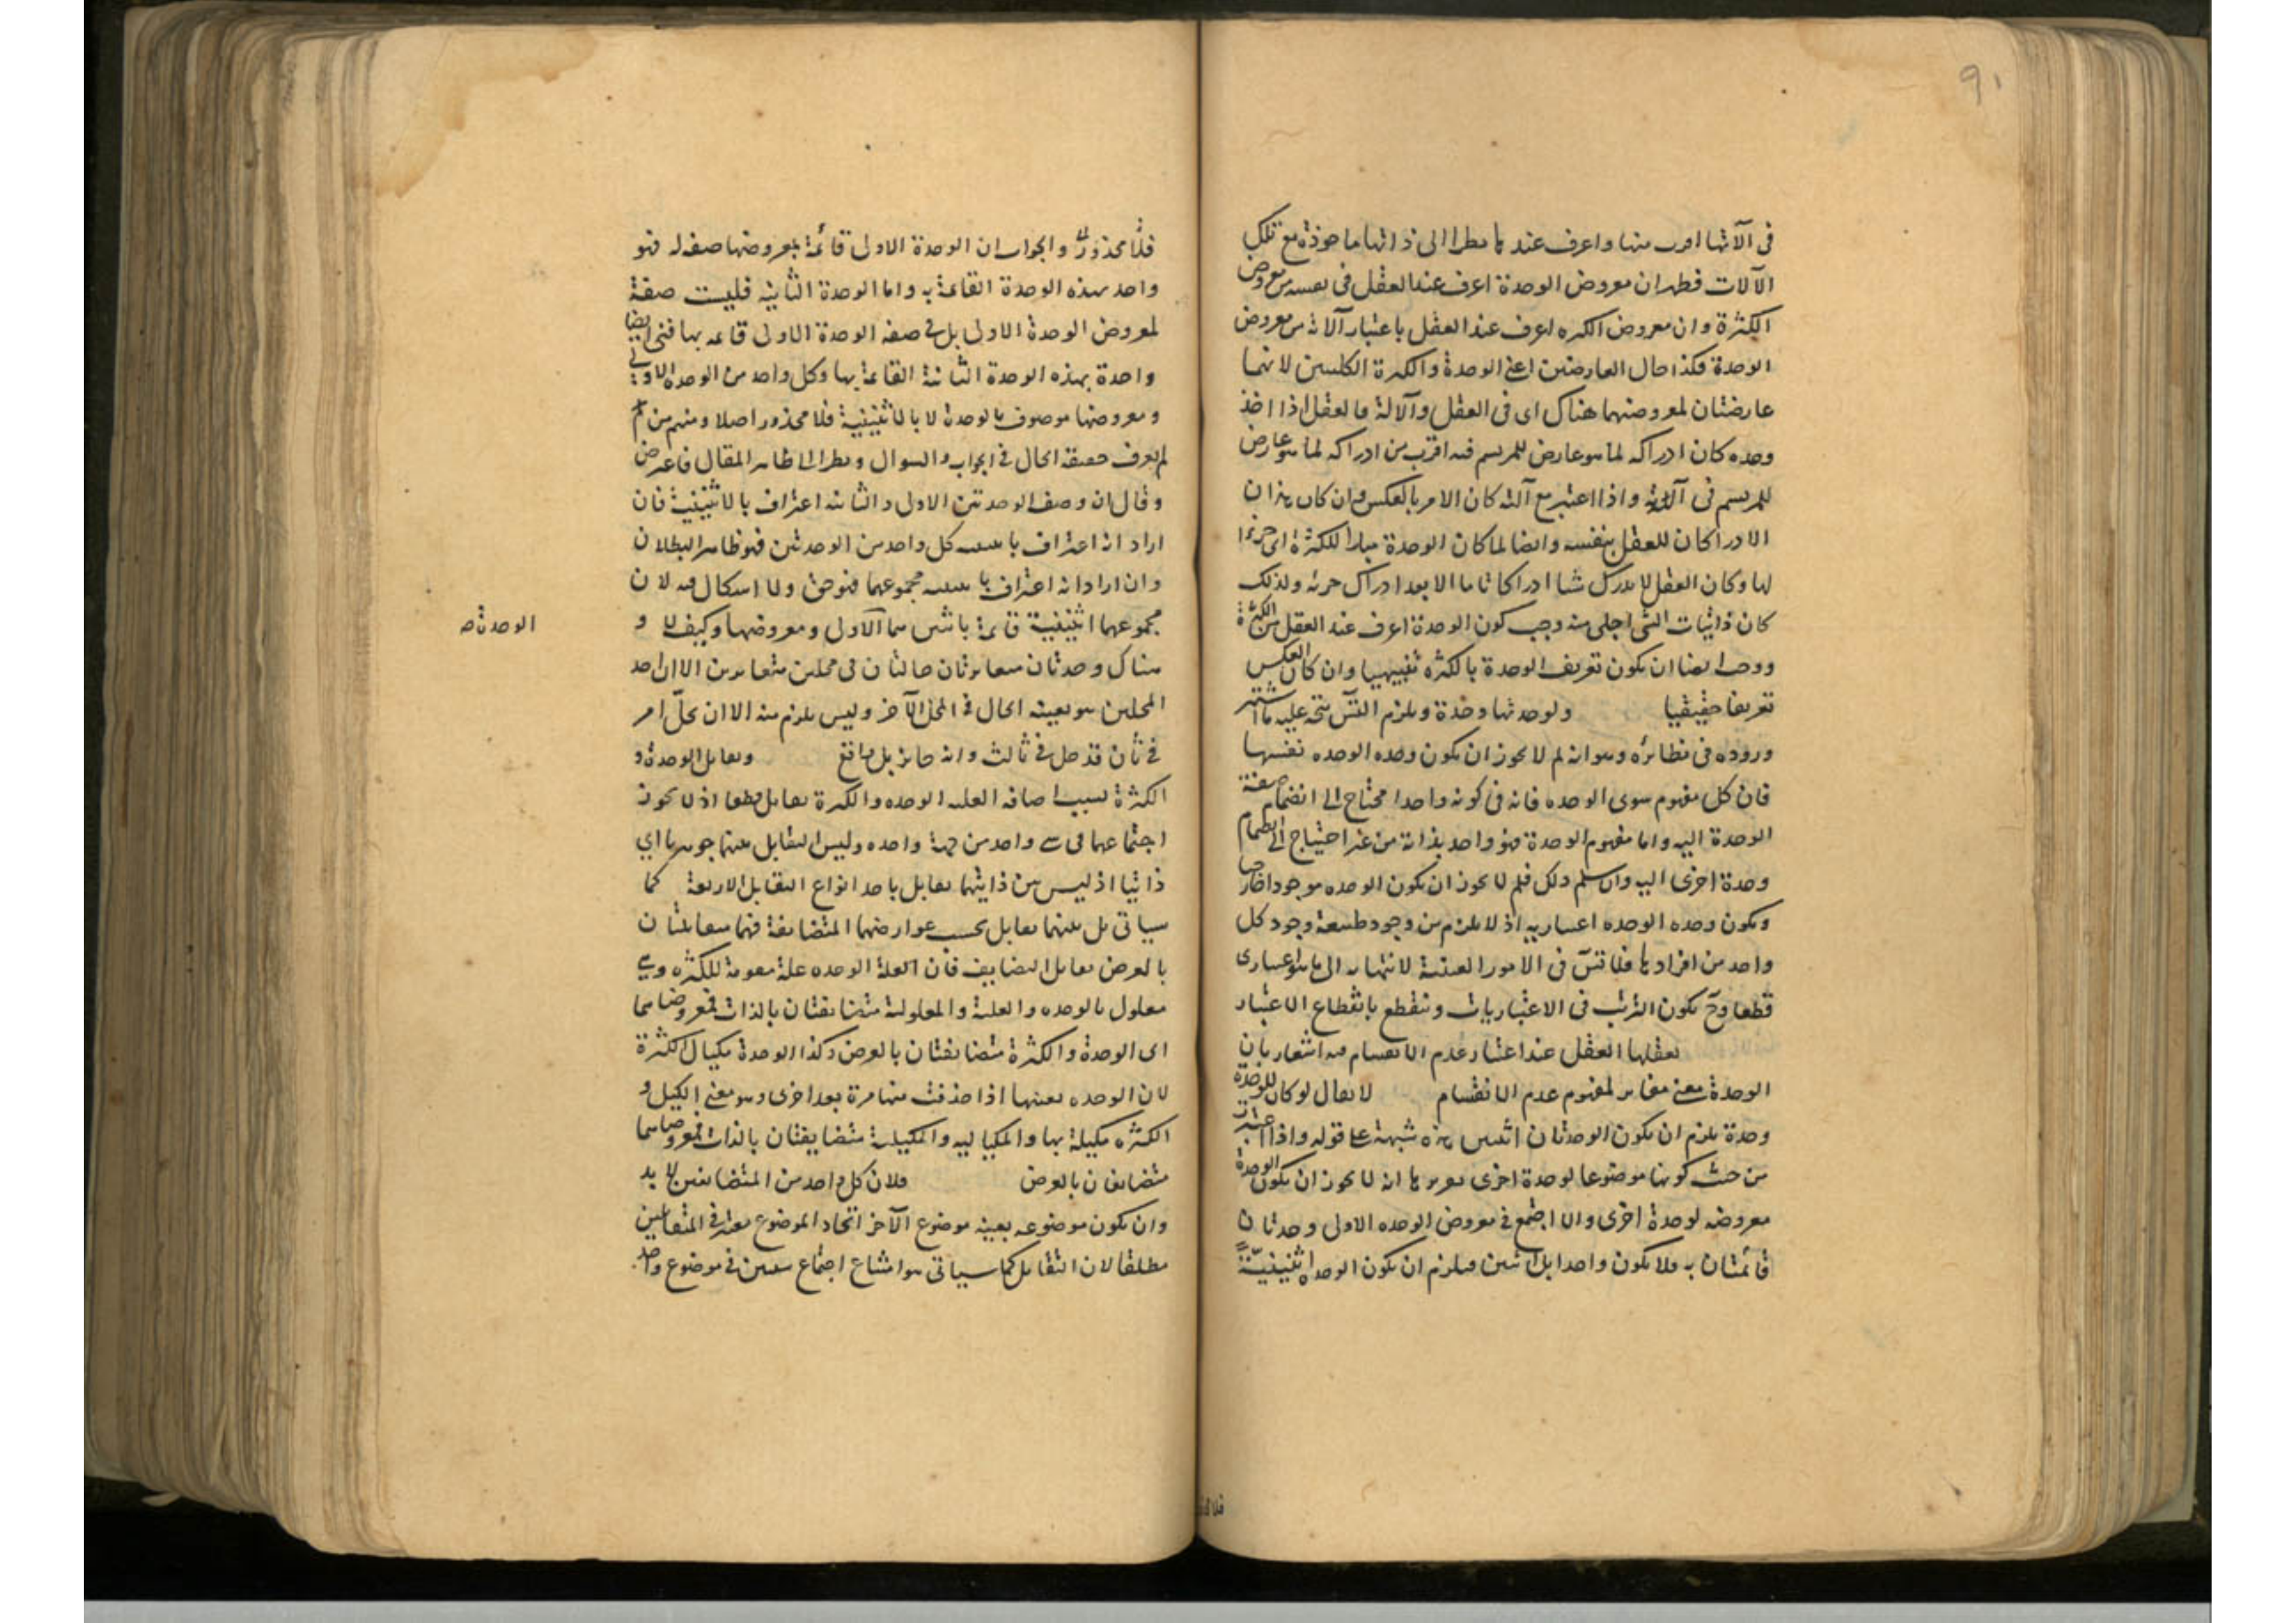 ٩١
فى آلاتها اقرب منها واعرف عندها نظرا الى ذاتها ماخوذة مع تلك
الآلات فظهر ان معروض الوحدة اعرف عند العقل فى نفسه من معروض
الكثرة وان معروض الكثره اعرف عند العقل باعتبار آلاته من معروض
الوحدة فكذا حال العارضتين اعنى الوحدة والكثرة الكليتين لانهما
عارضتان لمعروضيهما هناك اى فى العقل وآلاته فالعقل اذا اخذ
وحده كان ادراكه لما هو عارض للمرتسم فيه اقرب من ادراكه لما هو عارض
للمرتسم فى آلاته واذا اعتبر مع آلته كان الامر بالعكس وان كان هذان
الادراكان للعقل بنفسه وايضا لما كان الوحدة مبدأ للكثرة اى جزءا
لها وكان العقل لا يدرك شيا ادراكا تاما الا بعد ادراك جزئه ولذلك
كان ذاتيات الشى اجلى منه وجب كون الوحدة اعرف عند العقل من الكثرة
ووجب ايضا ان يكون تعريف الوحدة بالكثره تنبيهيا وان كان العكس
تعريفا حقيقيا ولوحدتها وحدة ويلزم التس يتجه عليه ما اشتهر
وروده فى نظائره وهو انه لم لا يجوز ان يكون وحده الوحده نفسها
فان كل مفهوم سوى الوحده فانه فى كونه واحدا محتاج الى انضمام صفة
الوحدة اليه واما مفهوم الوحدة فهو واحد بذاته من غير احتياج الى انضمام
وحدة اخرى اليه وان سلم ذلك فلم لا يجوز ان يكون الوحده موجودا خارجيا
ويكون وحده الوحده اعتباريه اذ لا يلزم من وجود طبيعة وجود كل
واحد من افرادها فلا تس فى الامور العينية لانتهائه الى ما هو اعتبارى
قطعا وح يكون الترتب فى الاعتباريات وينقطع بانقطاع الاعتبار
يعقلها العقل عند اعتبار عدم الانقسام فيه اشعار بان
الوحدة معنى مغاير لمفهوم عدم الانقسام لا يقال لو كان للوحدة
وحدة يلزم ان يكون الوحدتان اثنين هذه شبهة على قوله واذا اعتبرت
من حيث كونها موضوعا لوحدة اخرى تقريرها انه لا يجوز ان يكون الوحدة
معروضه لوحدة اخرى والا اجتمع فى معروض الوحده الاولى وحدتان
قائمتان به فلا يكون واحدا بل اثنين فيلزم ان يكون الوحده اثنينية
فلا محذور والجواب ان الوحدة الاولى قائمة بمعروضها صفه له فهو
واحد بهذه الوحدة القائمة به واما الوحدة الثانيه فليست صفة
لمعروض الوحدة الاولى بل هى صفه الوحدة الاولى قائمه بها فهى ايضا
واحدة بهذه الوحدة الثانية القائمة بها وكل واحد من الوحدة الاولى
ومعروضها موصوف بالوحدة لا بالاثنينية فلا محذور اصلا ومنهم من
لم يعرف حقيقة الحال فى الجواب والسوال ونظر الى ظاهر المقال فاعترض
وقال ان وصف الوحدتين الاولى والثانيه اعتراف بالاثنينية فان
اراد انه اعتراف باثنينيه كل واحد من الوحدتين فهو ظاهر البطلان
وان اراد انه اعتراف باثنينيه مجموعهما فهو حق ولا اشكال فيه لان
مجموعهما اثنينية قائمة باثنين هما الاولى ومعروضها وكيف لا و
هناك وحدتان متغايرتان حالتان فى محلين متغايرين الا ان احد
المحلين هو بعينه الحال فى المحل الآخر وليس يلزم منه الا ان يحل امر
فى ثان قد حل فى ثالث وانه جائز بل واقع وتقابل الوحدة و
الكثرة بسبب اضافه العليه الوحده والكثرة تقابل قطعا اذ لا يجوز
اجتماعهما فى شى واحد من جهة واحده وليس التقابل بينهما جوهريا اى
ذاتيا اذ ليس بين ذاتيهما تقابل باحد انواع التقابل الاربعة كما
سياتى بل بينهما تقابل بحسب عوارضهما المتضايفة فهما متقابلتان
بالعرض تقابل التضايف فان العلة الوحده علة مقومة للكثره وهى
معلول بالوحده والعلية والمعلولية متضايفتان بالذات فمعروضاهما
اى الوحدة والكثرة متضايفتان بالعرض وكذا الوحدة مكيال الكثرة
لان الوحده بعينها اذا حذفت منها مرة بعد اخرى وهو معنى الكيل و
الكثره مكيلة بها والمكياليه والمكيلية متضايفتان بالذات فمعروضاهما
متضايفان بالعرض ولان كل واحد من المتضايفين لا بد
وان يكون موضوعه بعينه موضوع الآخر اتحاد الموضوع معتبر فى المتقابلين
مطلقا لان التقابل كما سياتى هو امتناع اجتماع شيئين فى موضوع واحد
الوحدة صـ